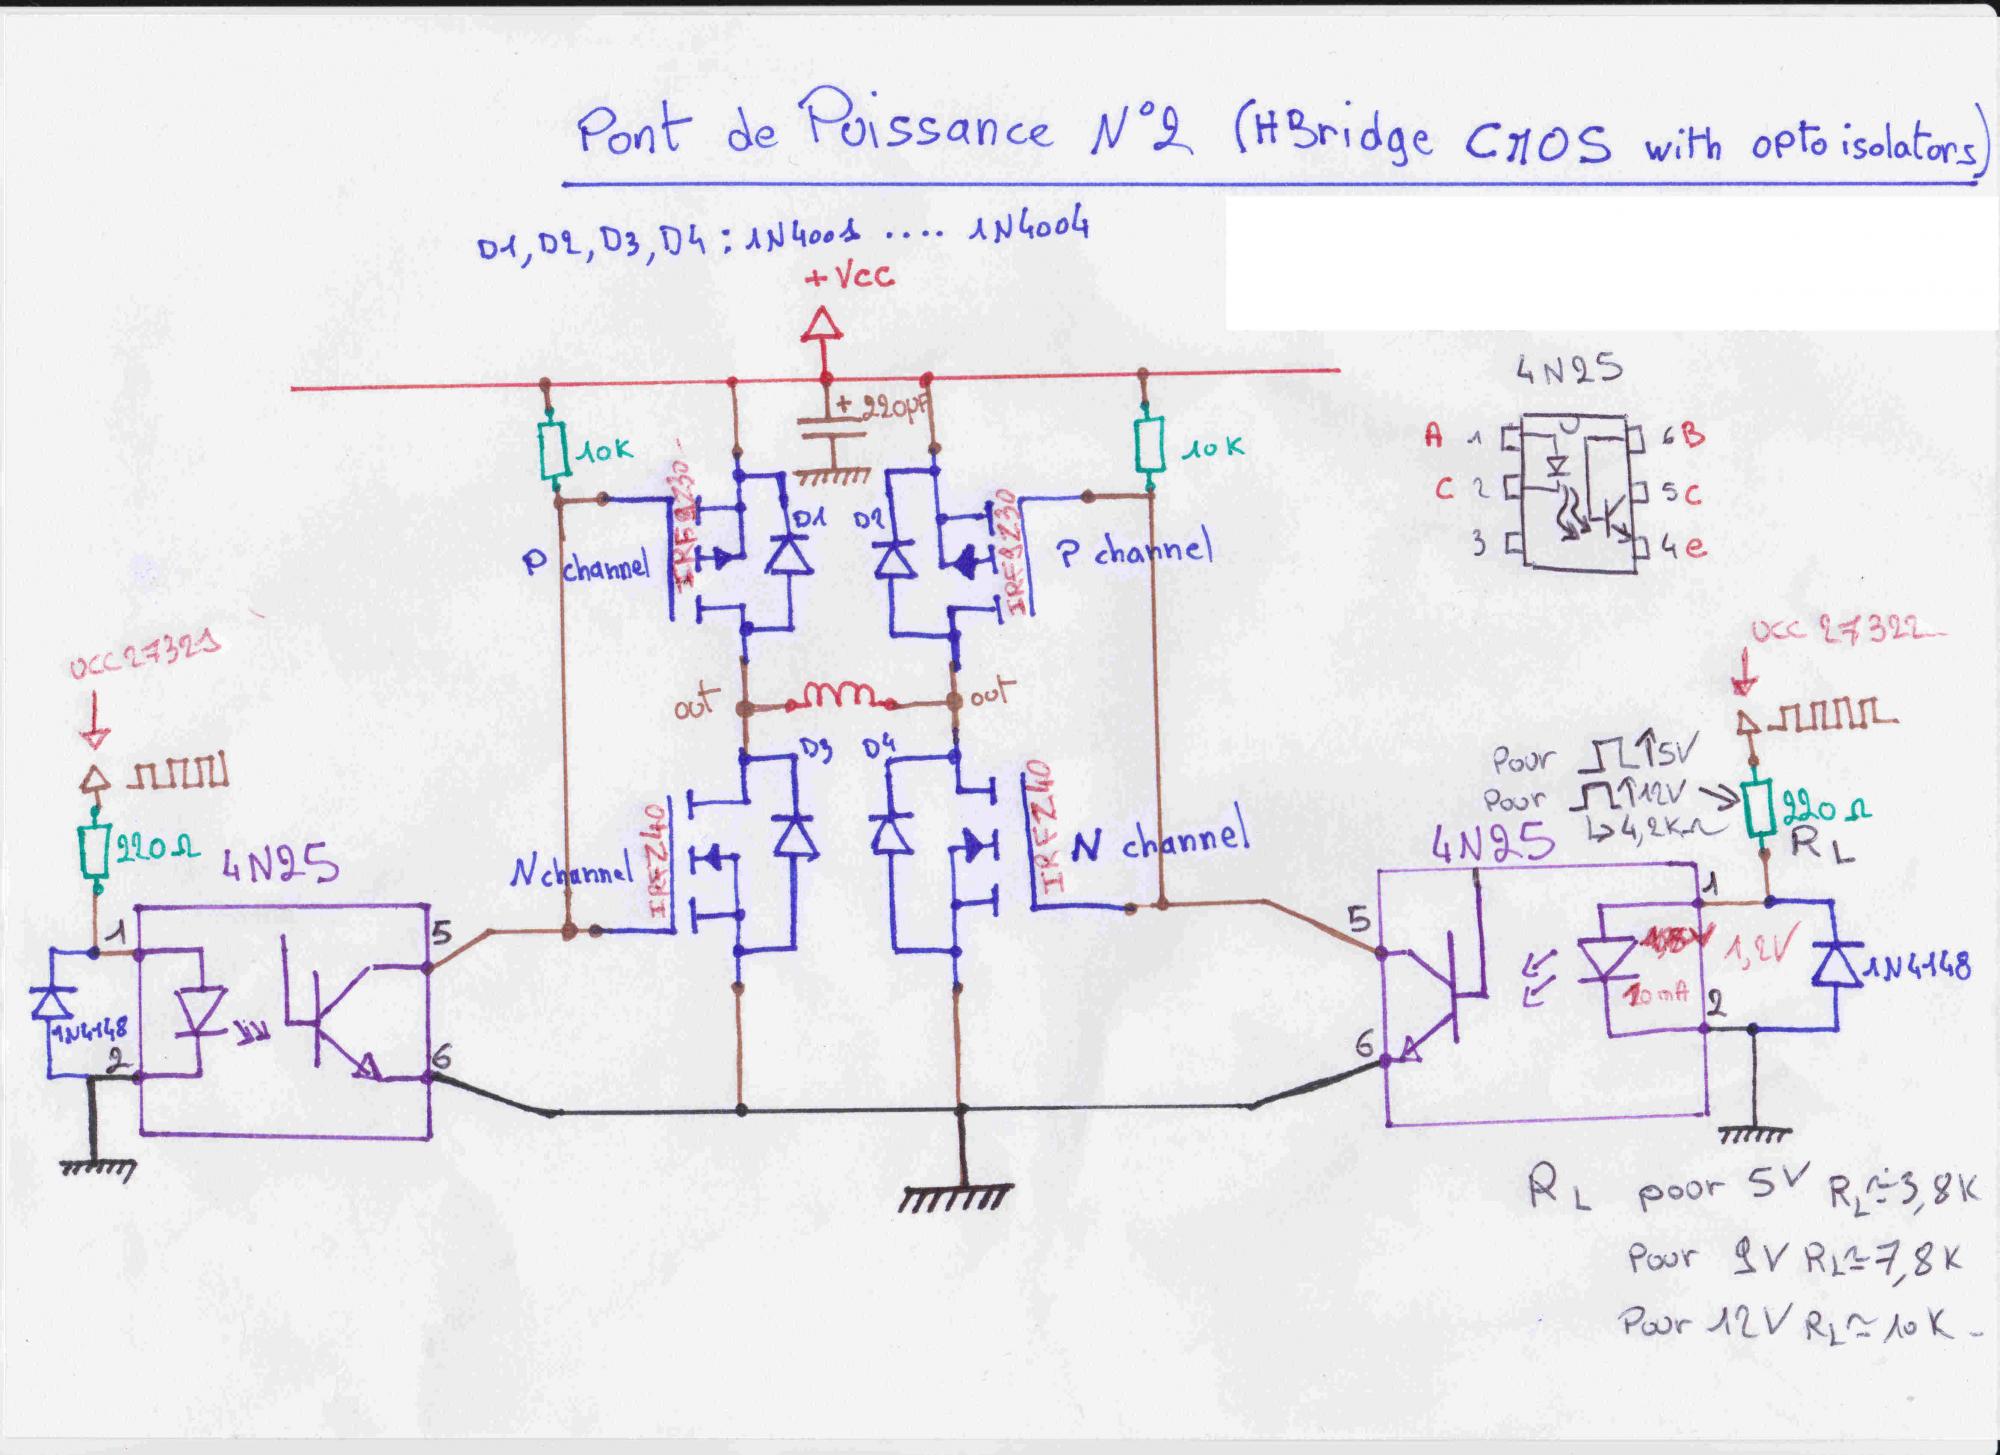 Pont de Puissance N°2 (HBridge CMOS with opto isolators)
D1, D2, D3, D4 : 1N4001 .... 1N4004
+Vcc
+ 220µF
10K
10K
4N25
A 1
C 2
3
6 B
5 C
4 e
P channel
IRF9Z30
D1
D2
IRF9Z30
P channel
UCC 27321
UCC 27322
out
out
220Ω
4N25
D3
D4
N channel
IRFZ40
IRFZ40
N channel
Pour 5V
Pour 12V
↳ 4,2KΩ
220Ω
RL
4N25
1
2
5
6
1N4148
5
6
1
2
1,2V
10mA
1N4148
RL pour 5V RL≃3,8K
Pour 9V RL≃7,8K
Pour 12V RL≃10K